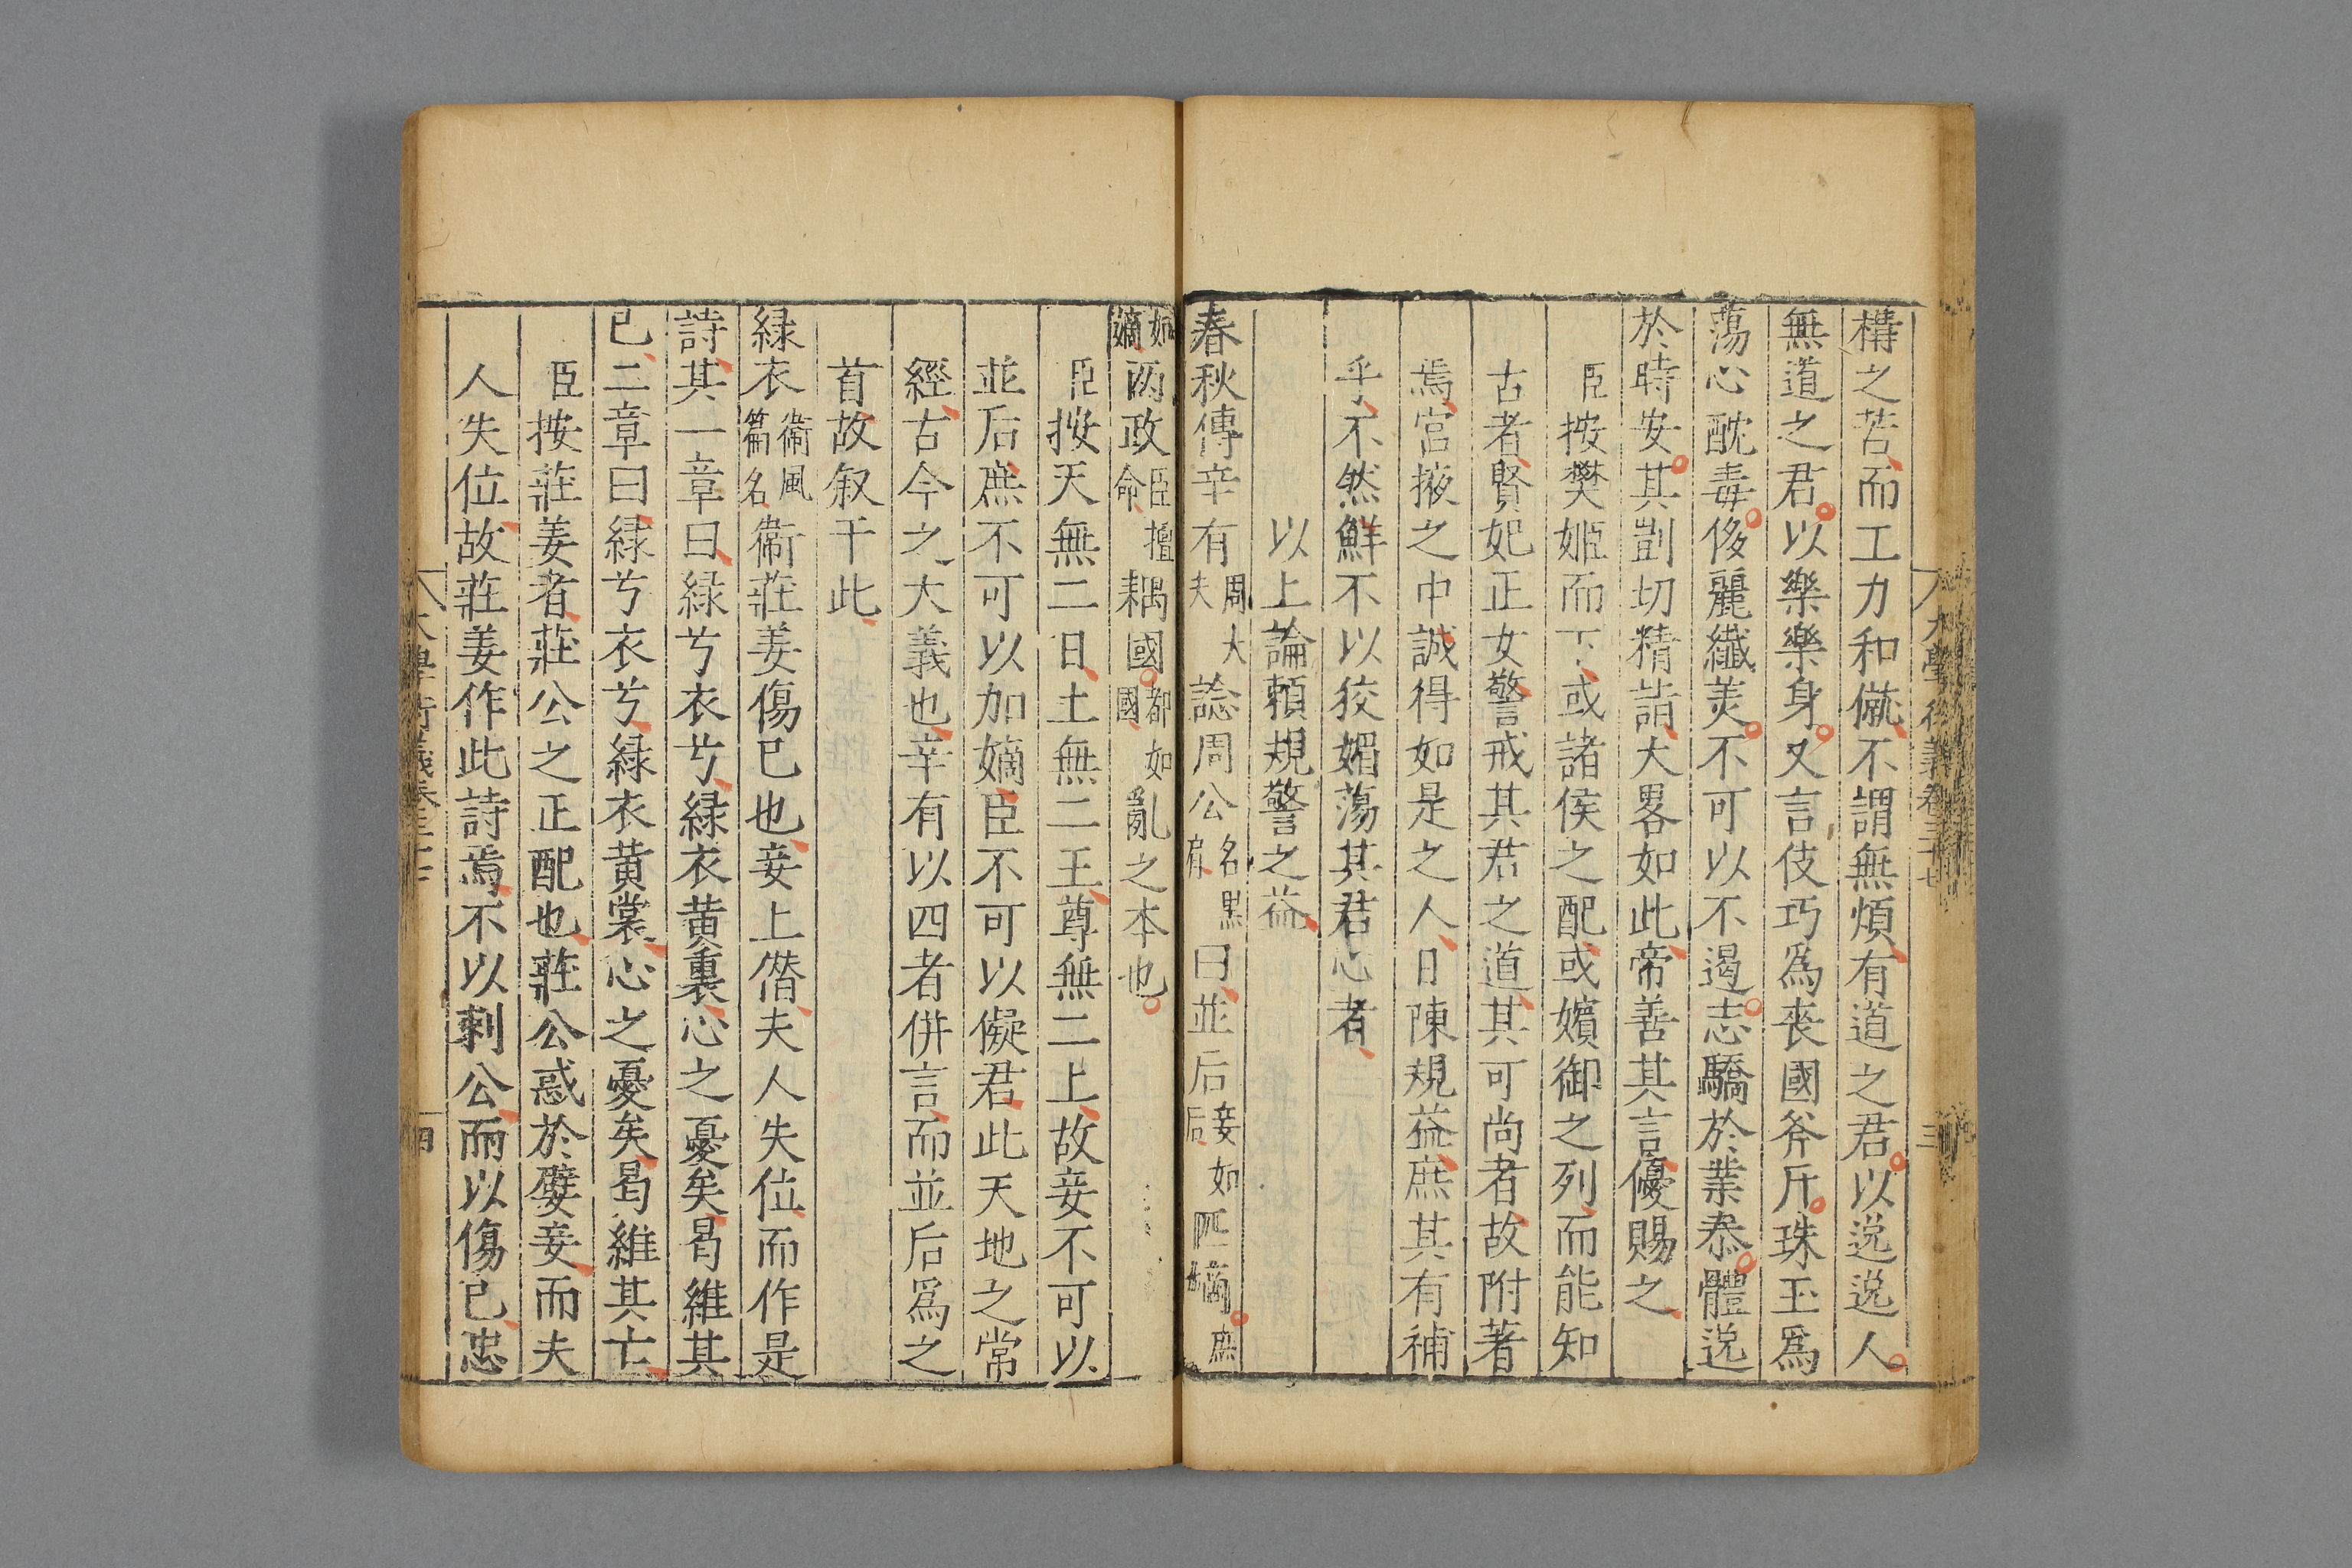 大學衍義卷三十七
三
構之苦而工力和僦不謂無煩有道之君以逸逸人
無道之君以樂樂身又言伎巧爲喪國斧斤珠玉爲
蕩心酖毒侈麗纖美不可以不遏志驕於業泰體逸
於時安其剴切精詣大畧如此帝善其言優賜之
臣按樊姬而下或諸侯之配或嬪御之列而能知
古者賢妃正女警戒其君之道其可尚者故附著
焉宮掖之中誠得如是之人日陳規益庶其有補
乎不然鮮不以狡媚蕩其君心者
以上論賴規警之益
春秋傳辛有周大夫諗周公名黑肩曰並后妾如后匹嫡庶
如嫡兩政臣擅命耦國都如國亂之本也
臣按天無二日土無二王尊無二上故妾不可以
並后庶不可以加嫡臣不可以儗君此天地之常
經古今之大義也辛有以四者併言而並后爲之
首故叙于此
緑衣衞風篇名衞莊姜傷已也妾上僭夫人失位而作是
詩其一章曰緑兮衣兮緑衣黄裏心之憂矣曷維其
已二章曰緑兮衣兮緑衣黄裳心之憂矣曷維其亡
臣按莊姜者莊公之正配也莊公惑於嬖妾而夫
人失位故莊姜作此詩焉不以刺公而以傷已忠
大學衍義卷三十
四